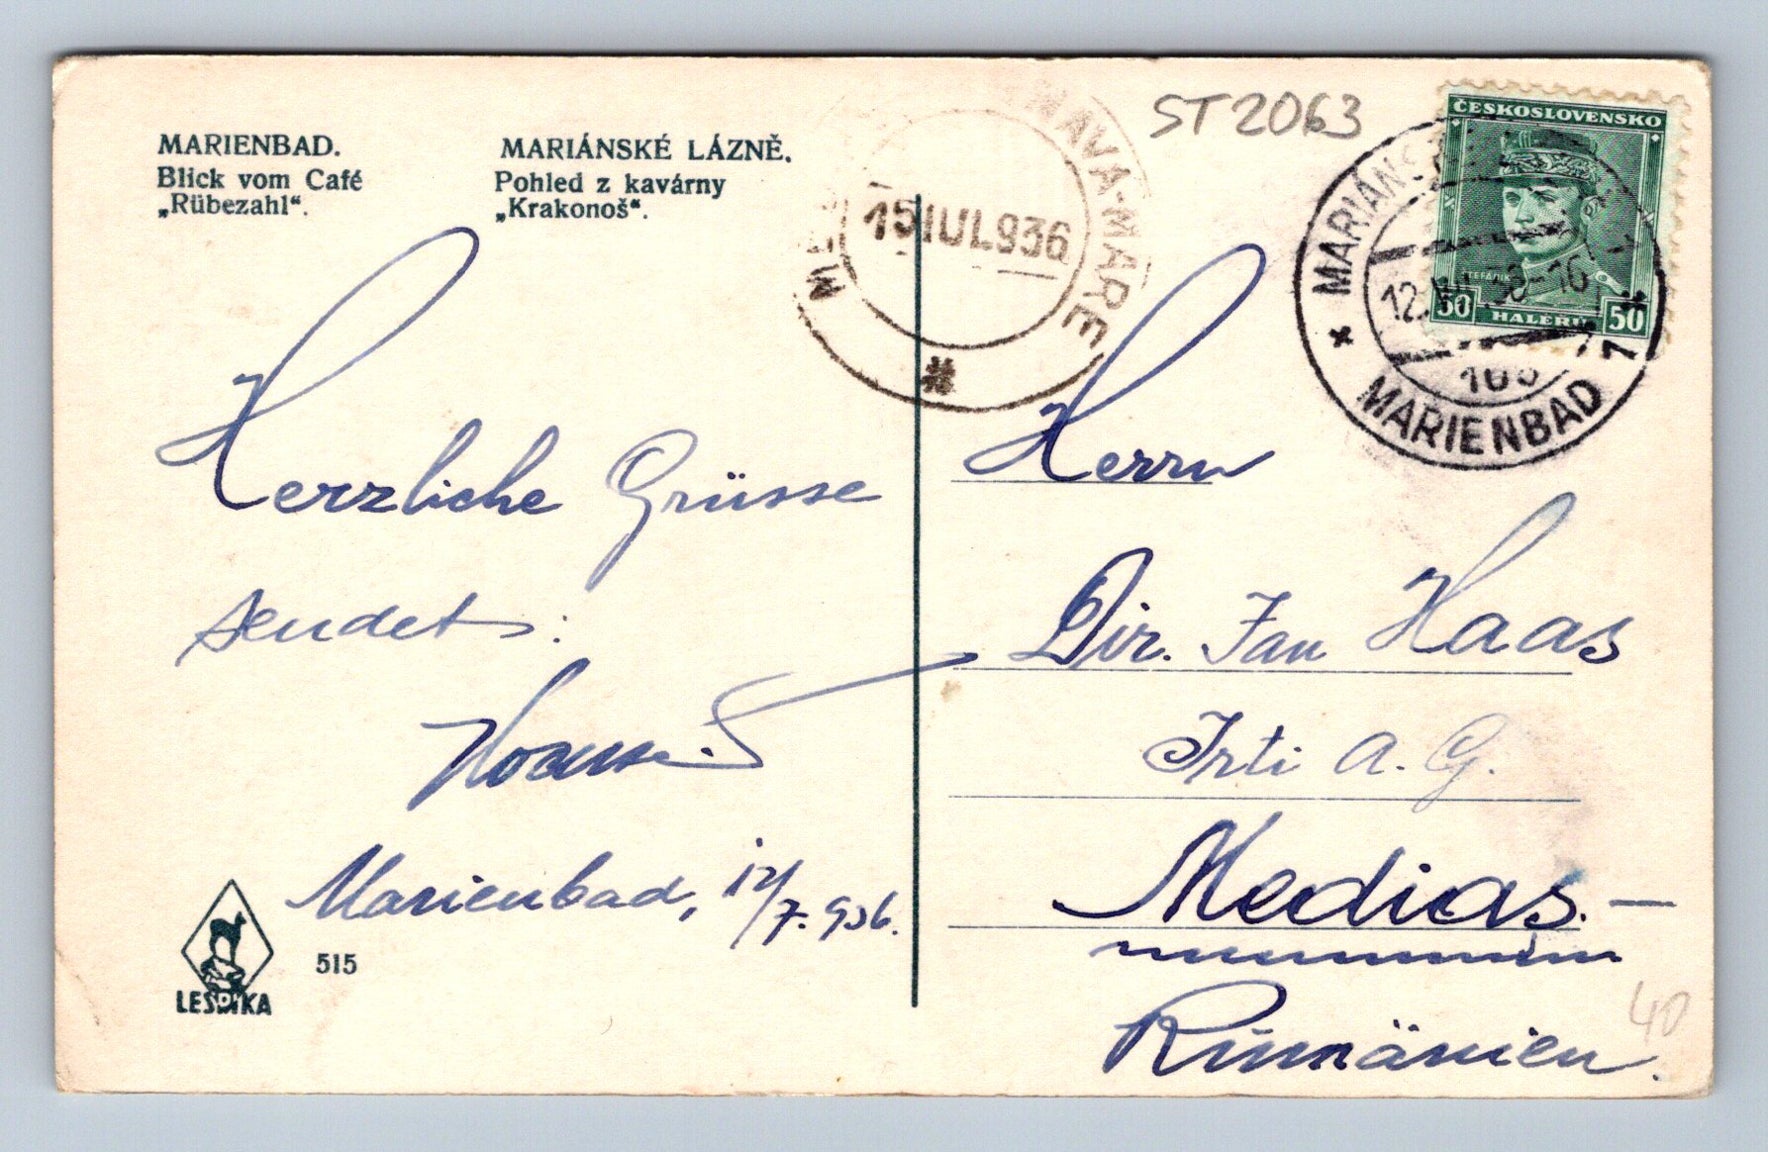 MARIENBAD.
Blick vom Café
„Rübezahl“.
MARIÁNSKÉ LÁZNĚ.
Pohled z kavárny
„Krakonoš“.
ST2063
TÂRNAVA-MARE
15 IUL 936
ČESKOSLOVENSKO
ŠTEFÁNIK
50 HALERU 50
MARIÁNSKÉ
12.VII.36-16
MARIENBAD 1
Herzliche Grüsse
sendet:
Marienbad, 12/7. 936.
Herrn
Dir. Jan Haas
Irti A. G.
Medias. —
Rumänien.
40
LESDIKA
515